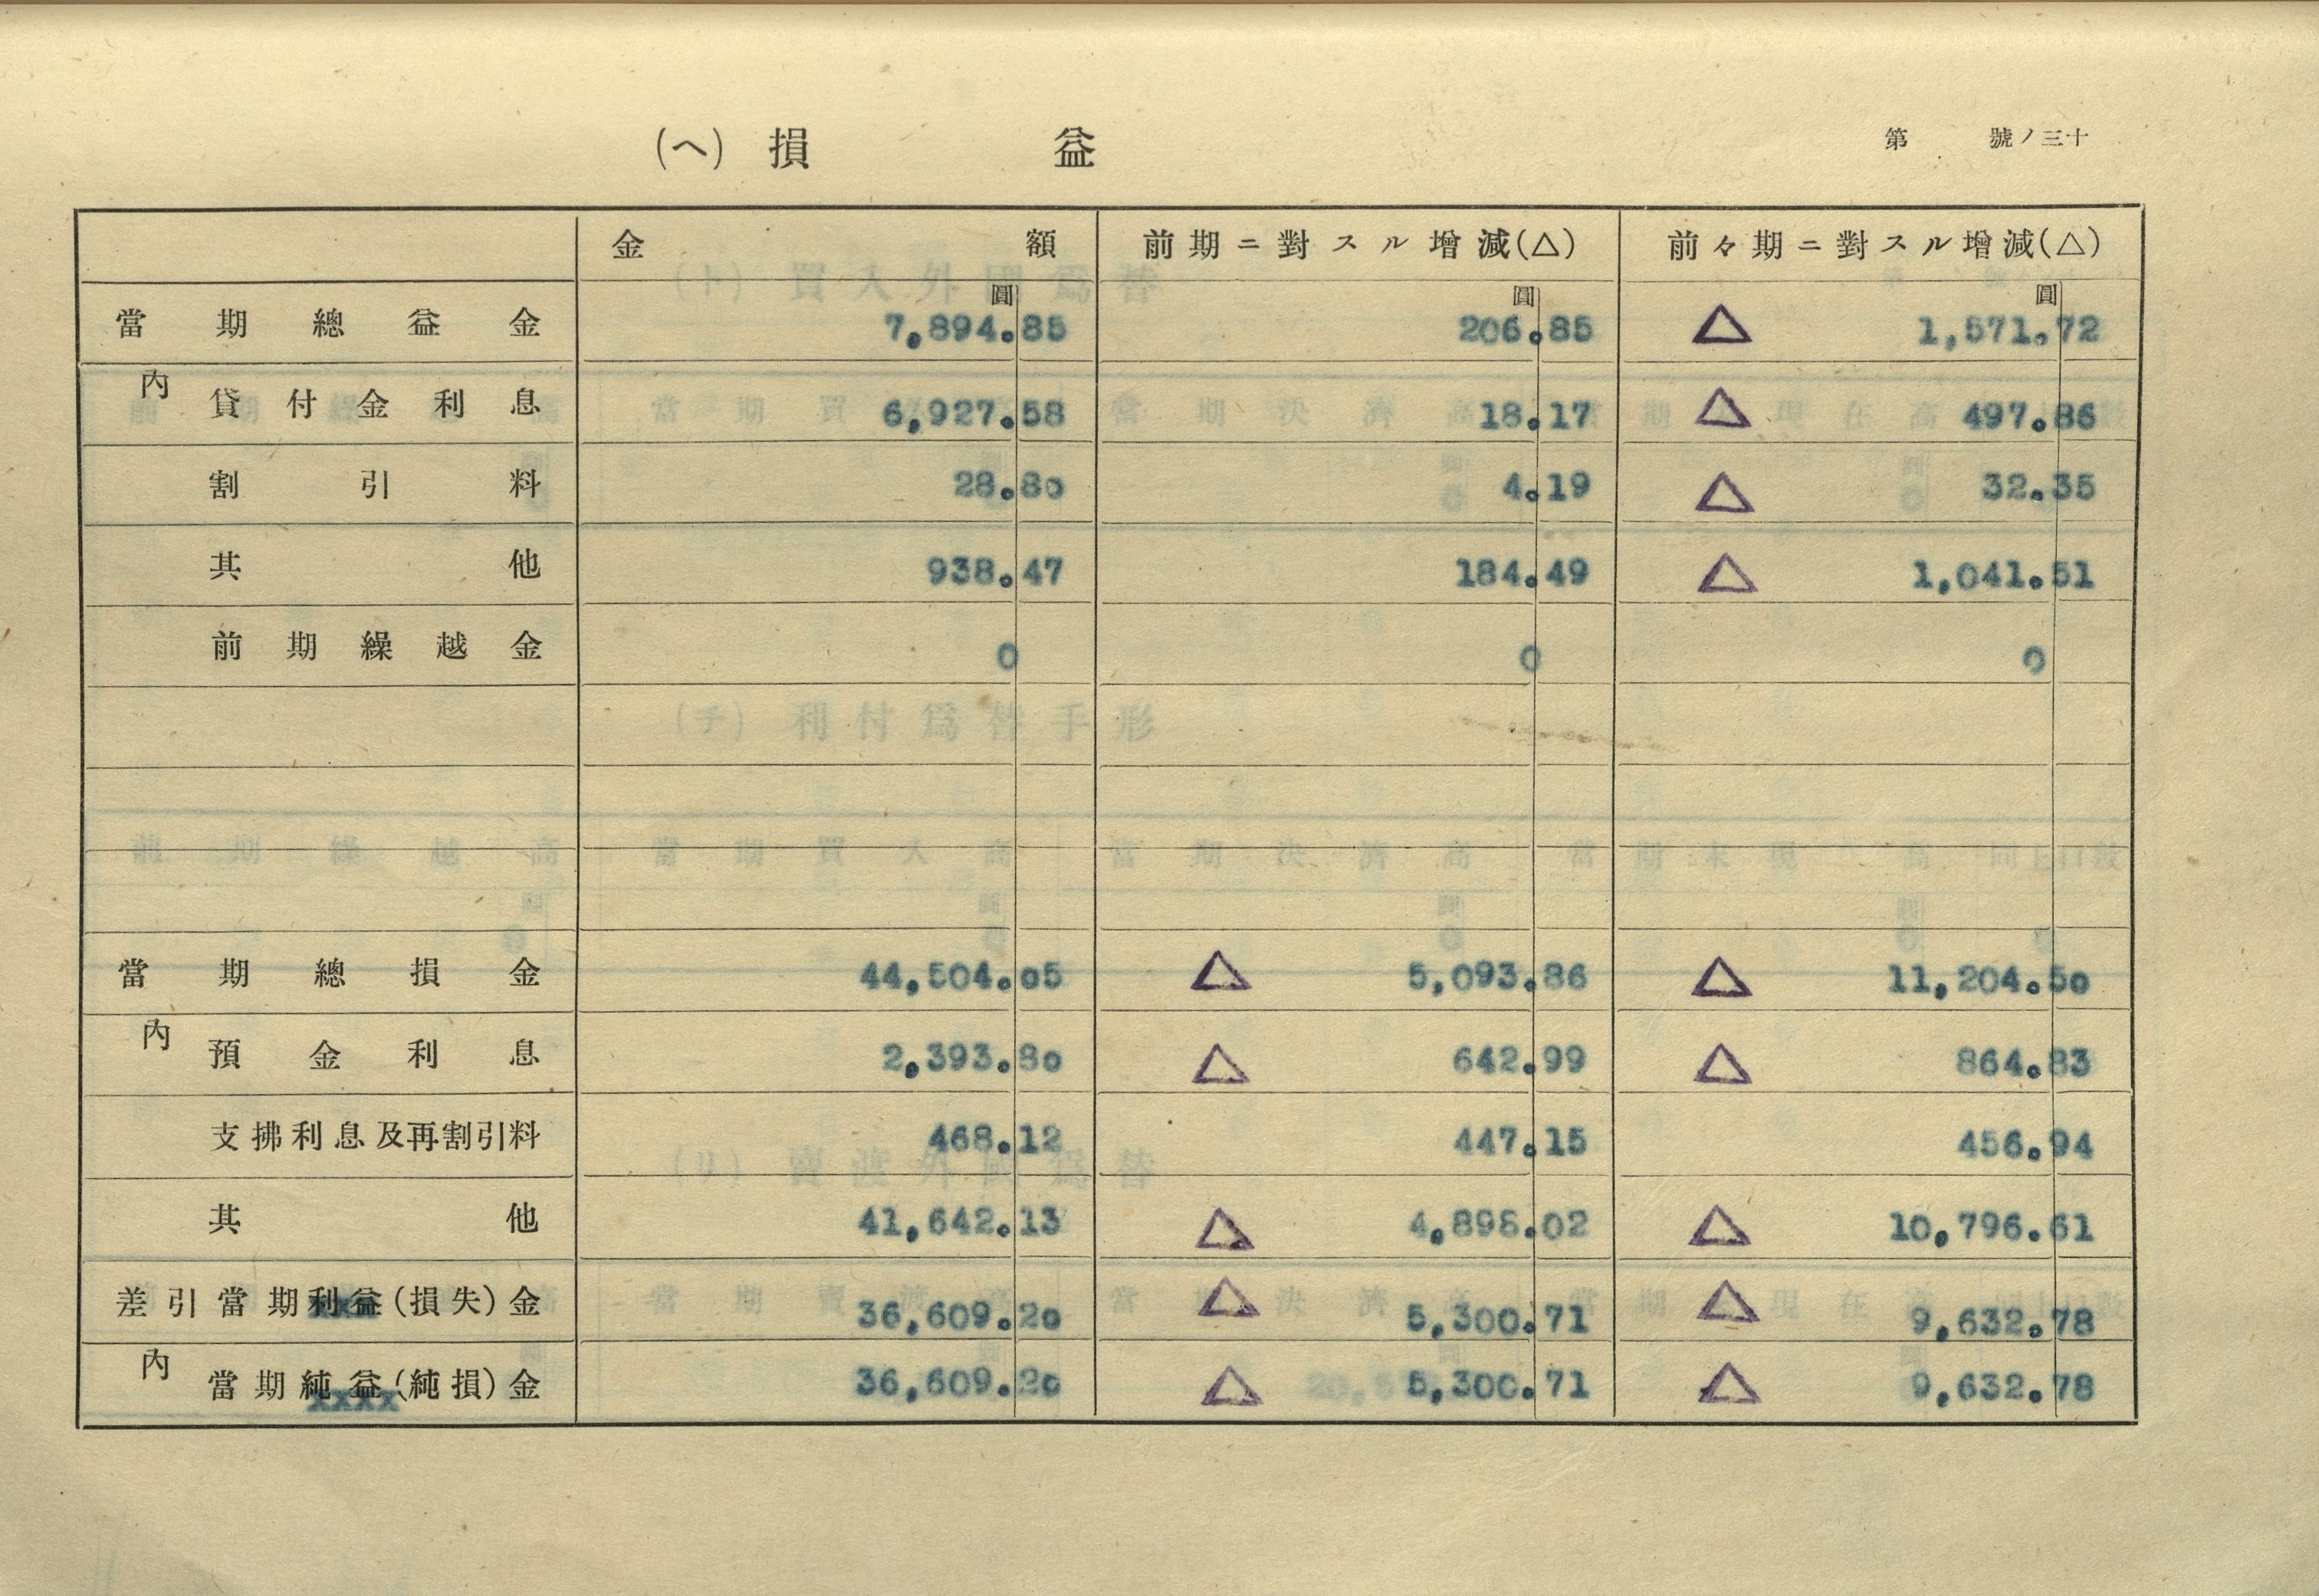 (ヘ) 損益
第 號ノ三十
金額 前期ニ對スル增減(△) 前々期ニ對スル增減(△)
圓 圓 圓
當期總益金 7,894.85 206.85 △ 1,571.72
內 貸付金利息 6,927.58 18.17 △ 497.86
割引料 28.80 4.19 △ 32.35
其他 938.47 184.49 △ 1,041.51
前期繰越金 0 0 0
當期總損金 44,504.05 △ 5,093.86 △ 11,204.50
內 預金利息 2,393.80 △ 642.99 △ 864.83
支拂利息及再割引料 468.12 447.15 456.94
其他 41,642.13 △ 4,898.02 △ 10,796.61
差引當期利益(損失)金 36,609.20 △ 5,300.71 △ 9,632.78
內 當期純益(純損)金 36,609.20 △ 5,300.71 △ 9,632.78